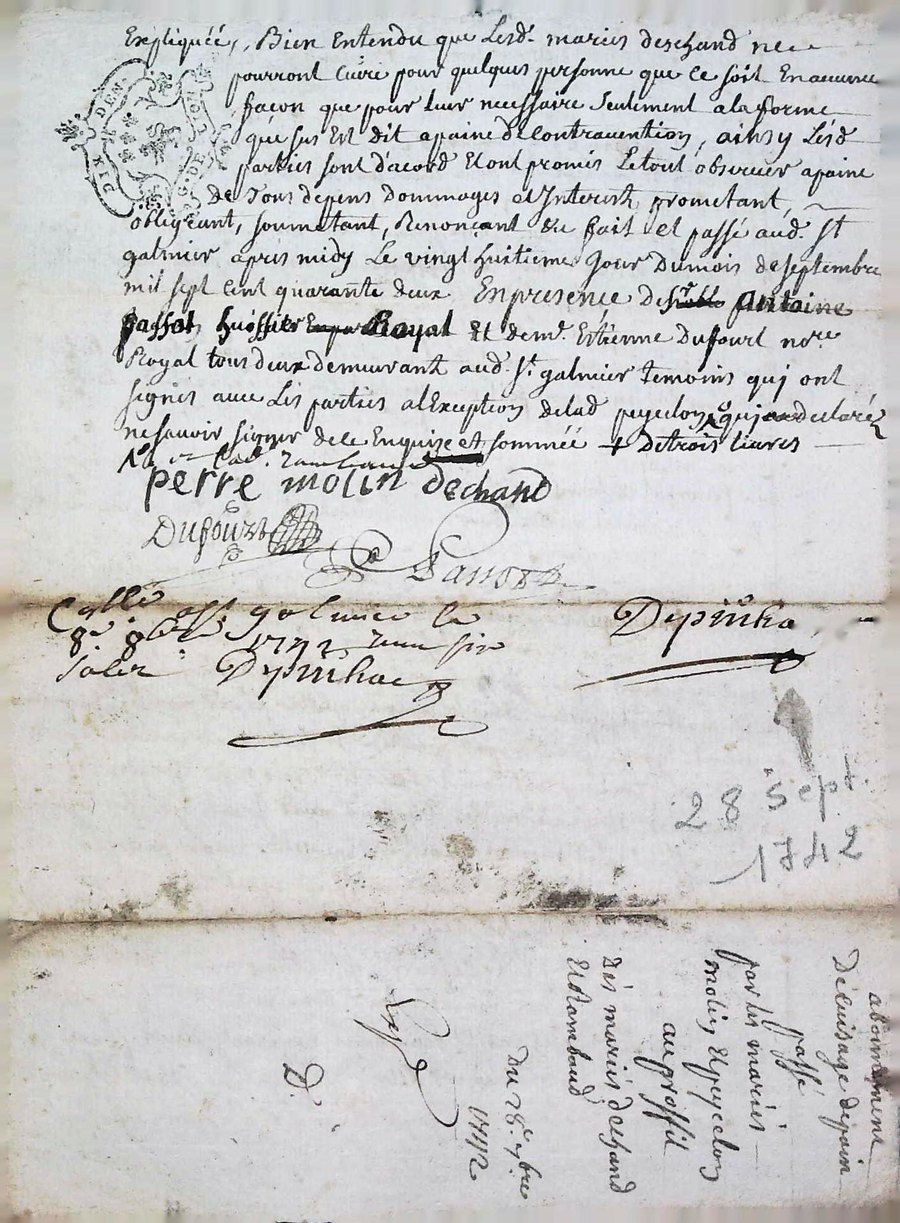 Expliquéé,, Bien Entendu que Lesd. mariés deschand ne
pourront Cuire pour quelques personne que Ce soit En aucune
façon que pour leur necessaire seulement a la forme
que sus Est dit a paine de Contravention, ainsy Lesd
parties sont d'acord Et ont promis Le tout observer a paine
De Tous depens Dommages et Interests, prometant,
obligeant, soumetant, Renonçant &c fait et passé aud. St
galmier apres midy Le vingt huitieme Jour Dumois de septembre
mil sept Cent quarante deux En presence de antoine
passot huissier Royal Et de mr. Estienne Dufourt nore
Royal tous deux demeurant aud. St. galmier temoins qui ont
signés avec Les parties a l'Exception de lad peyeclon qui a declaré
ne savoir signer de ce Enquise et sommée + De trois livres
perre molin dechand
Dufourt
Passot
galmier le
8e. 8bre 1742
Depinhac
Depinhac
28 sept.
1742
abonnement
De Cuisage de pain
passé
par les mariés
molin Et peyeclon
au proffit
Des mariés dechand
Et Rambaud
Du 28e. 7bre
1742
D.